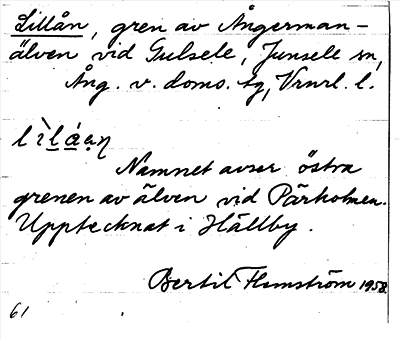 Lillån, gren av Ångerman-
älven vid Gulsele, Junsele sn,
Ång. v. doms. tg, Vrnrl. l.
lìláaŋ
Namnet avser östra
grenen av älven vid Pärholmen.
Upptecknat i Hällby.
Bertil Flemström 1958
61